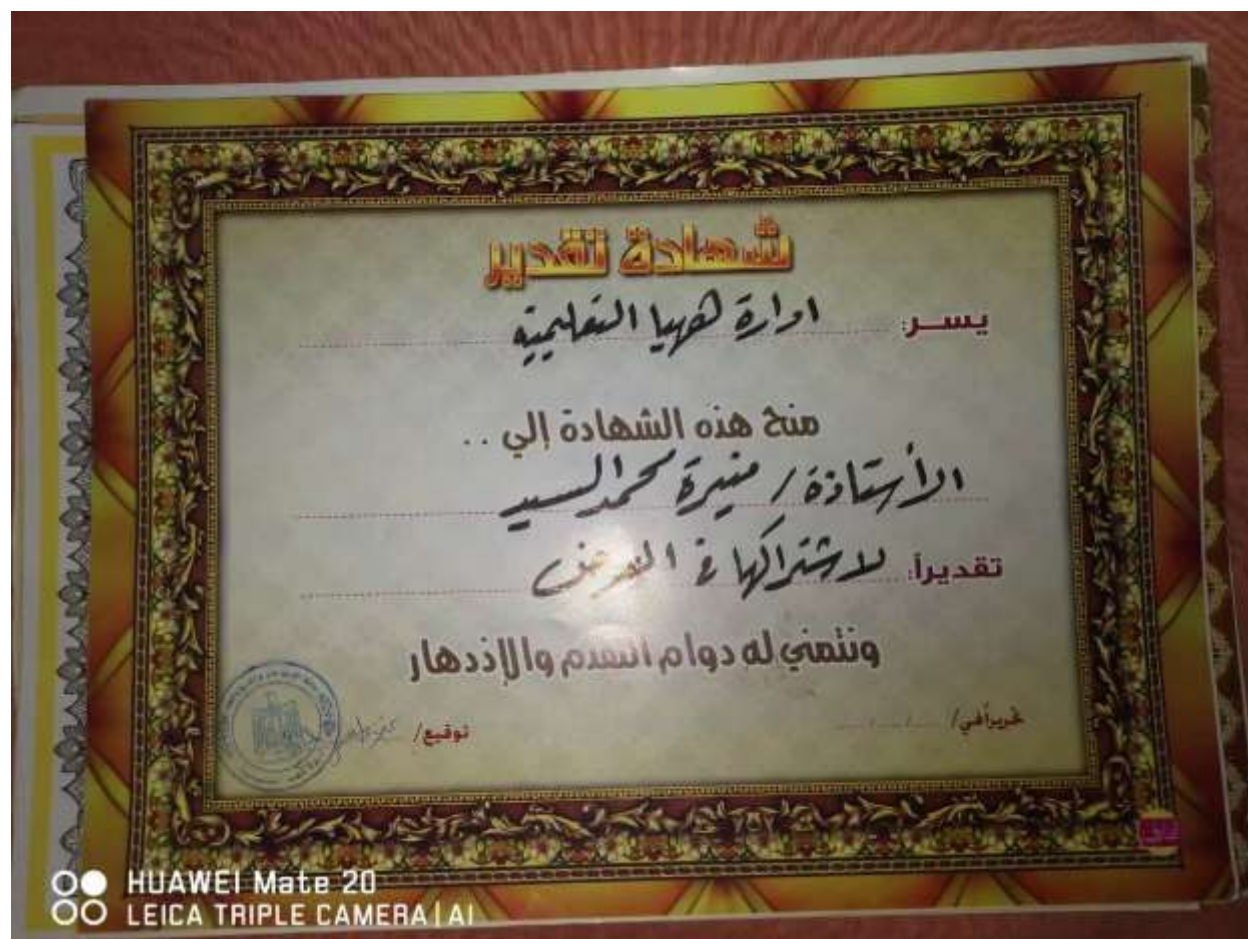 شهادة تقدير
يسر: ادارة ههيا التعليمية
منح هذه الشهادة إلي . .
الأستاذة / منيرة محمد السيد
تقديراً: لاشتراكها في المعرض
ونتمني له دوام التقدم والإزدهار
تحريراً في / ... / ... / ...
توقيع /
HUAWEI Mate 20
LEICA TRIPLE CAMERA | AI